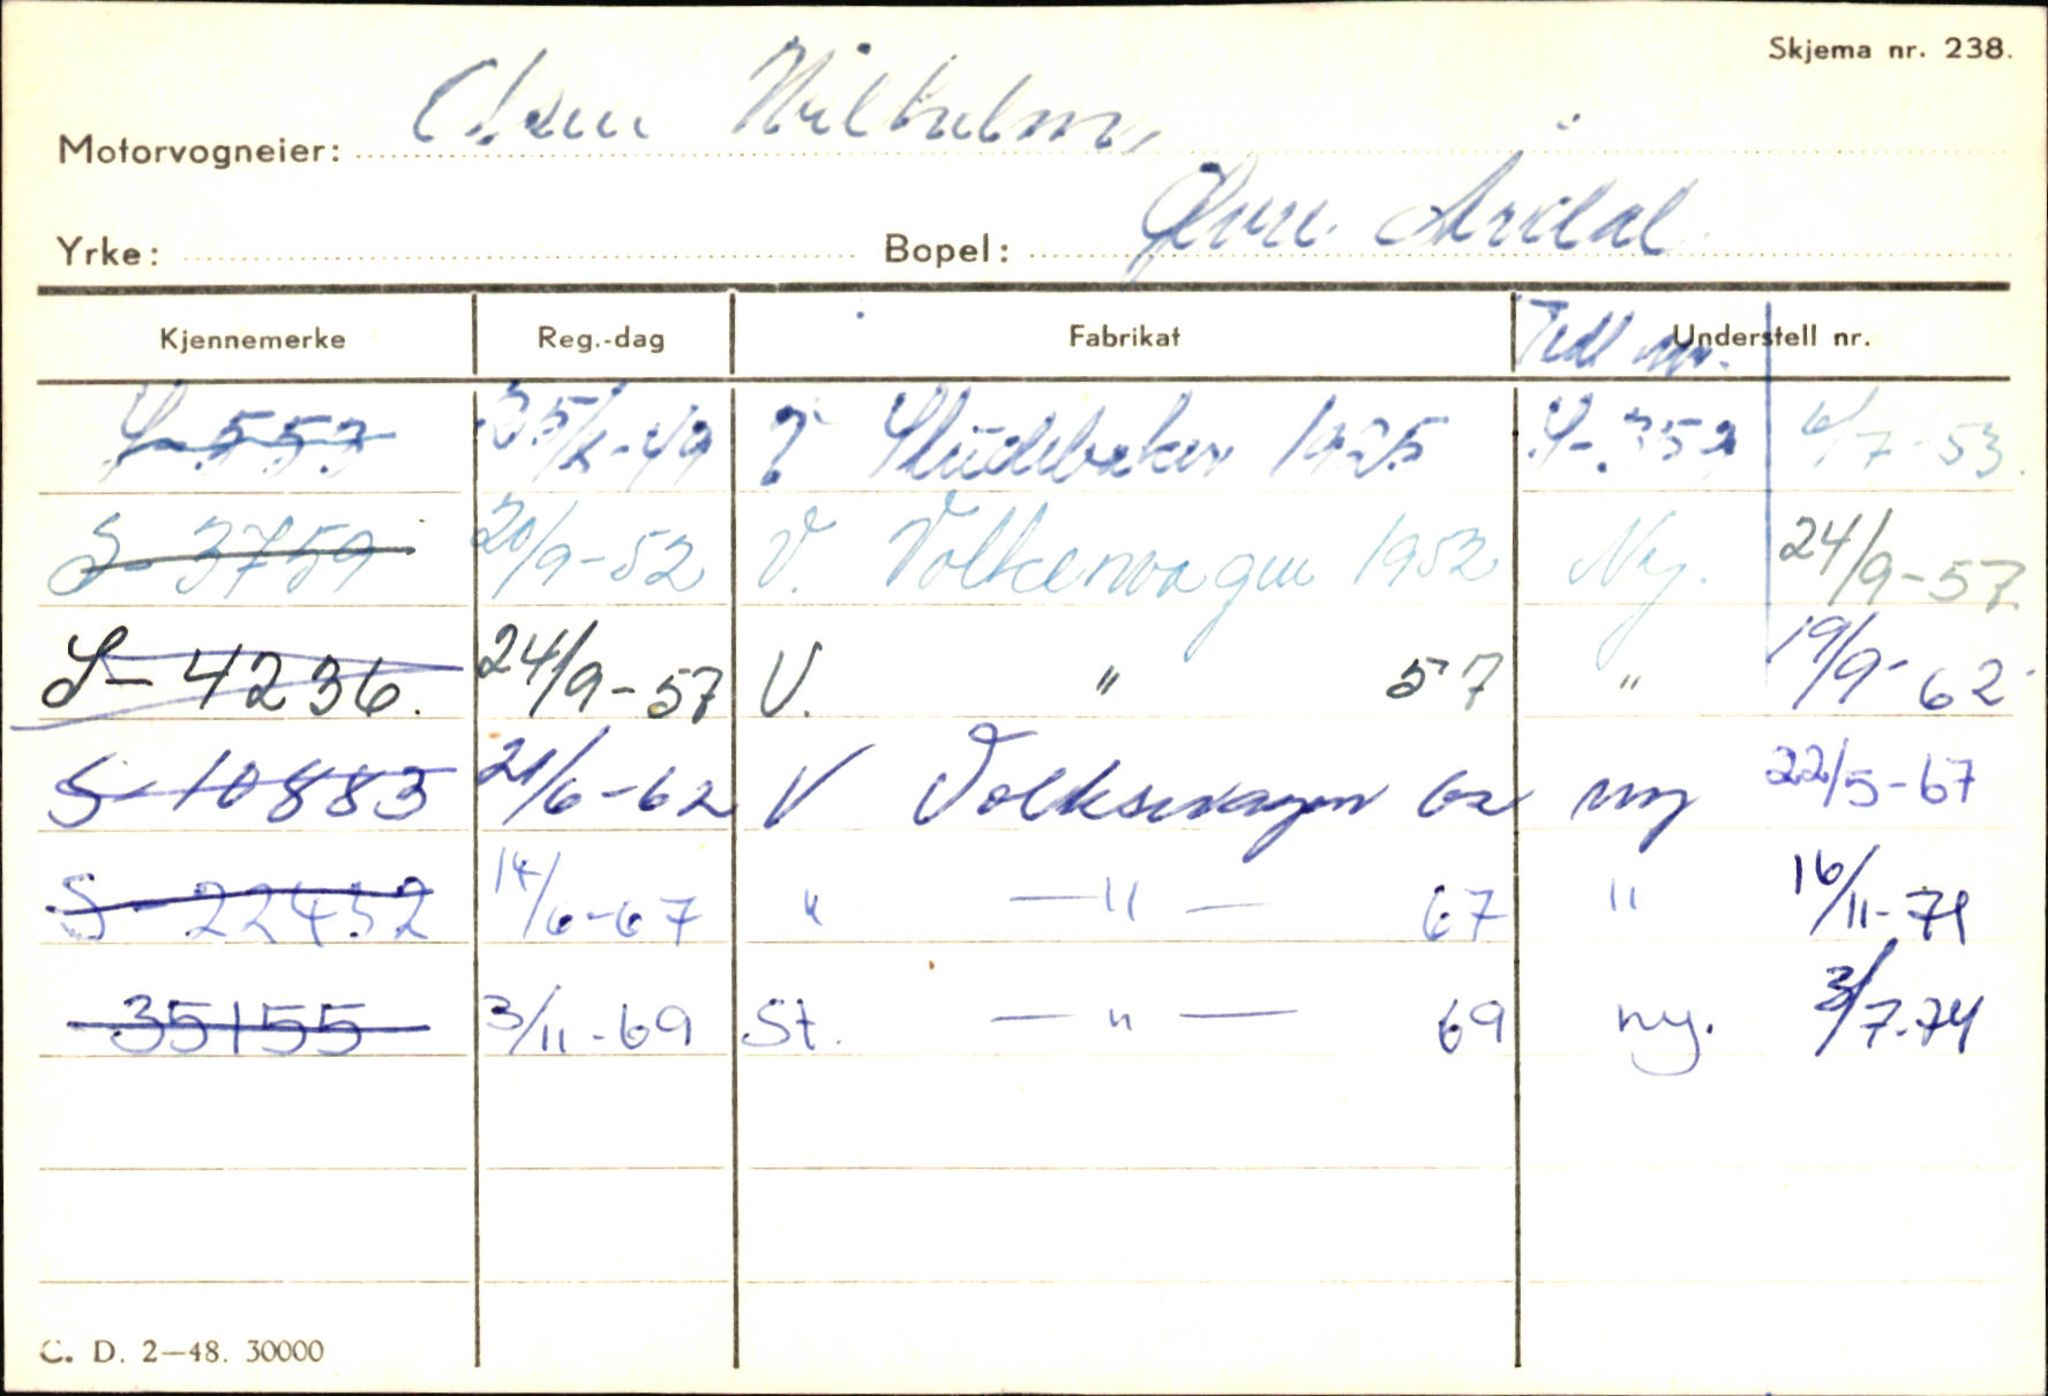 Skjema nr. 238.
Motorvogneier: Olsen Wilhelm,
Yrke: Bopel: Øvre Årdal
Kjennemerke Reg.-dag Fabrikat Tidl nr. Understell nr.
S-553 /2-49 Studebaker 1925 S-359 6/7-53.
S-3759 20/9-52 V. Volkenvagen 1952 Ny. 24/9-57
S-4236. 24/9-57 V. " 57 " 19/9-62
S-10883 21/6-62 V Volkswagen 62 ny 22/5-67
S-22452 14/6-67 " —"— 67 " 16/11-71
35155 3/11-69 St. —"— 69 ny. 3/7.74
C. D. 2—48. 30000